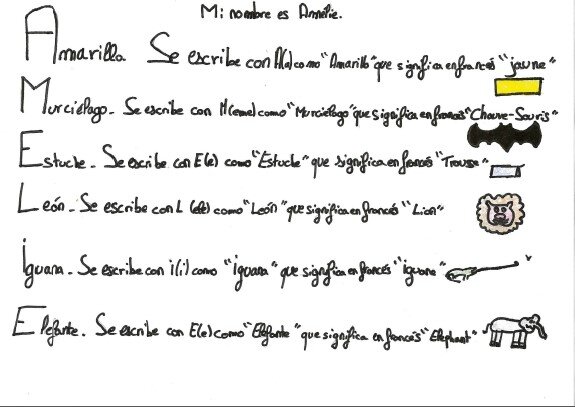 Mi nombre es Amélie.
Amarillo. Se escribe con A(a) como "Amarillo" que significa en francés "jaune"
Murciélago. Se escribe con M(eme) como "Murciélago" que significa en francés "Chauve-Souris"
Estuche. Se escribe con E(e) como "Estuche" que significa en francés "Trousse"
León. Se escribe con L (ele) como "León" que significa en francés "Lion"
Iguana. Se escribe con i(i) como "iguana" que significa en francés "iguane"
Elefante. Se escribe con E(e) como "Elefante" que significa en francés "Elephant"